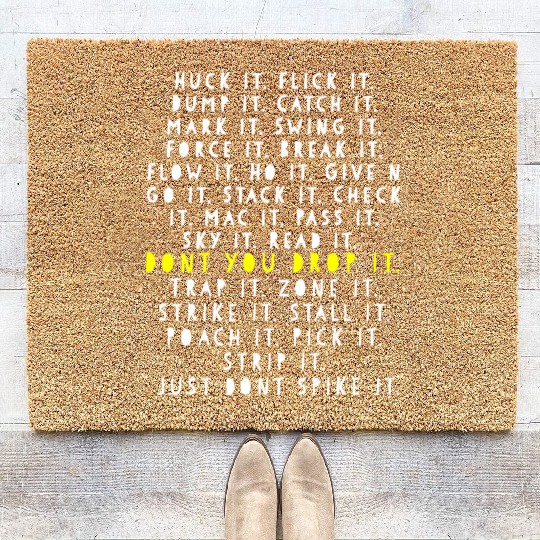 HUCK IT. FLICK IT.
DUMP IT. CATCH IT.
MARK IT. SWING IT.
FORCE IT. BREAK IT.
FLOW IT. HO IT. GIVE N
GO IT. STACK IT. CHECK
IT. MAC IT. PASS IT.
SKY IT. READ IT.
DONT YOU DROP IT.
TRAP IT. ZONE IT.
STRIKE IT. STALL IT.
POACH IT. PICK IT.
STRIP IT.
JUST DONT SPIKE IT